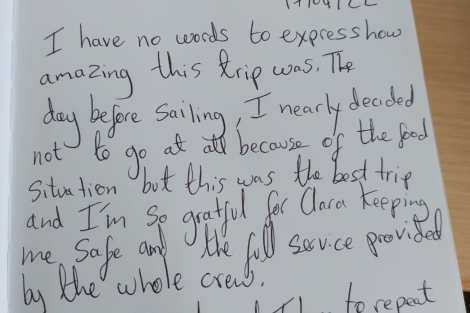 17/04/22
I have no words to express how
amazing this trip was. The
day before sailing, I nearly decided
not to go at all because of the food
situation but this was the best trip
and I'm so gratful for Clara keeping
me safe and the full service provided
by the whole crew.
to repeat